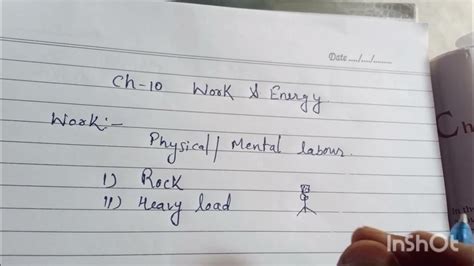 Date..../..../........
Ch-10 Work & Energy
Work:-
Physical/ Mental labour.
I) Rock
II) Heavy load
Ch
in the
InShOt